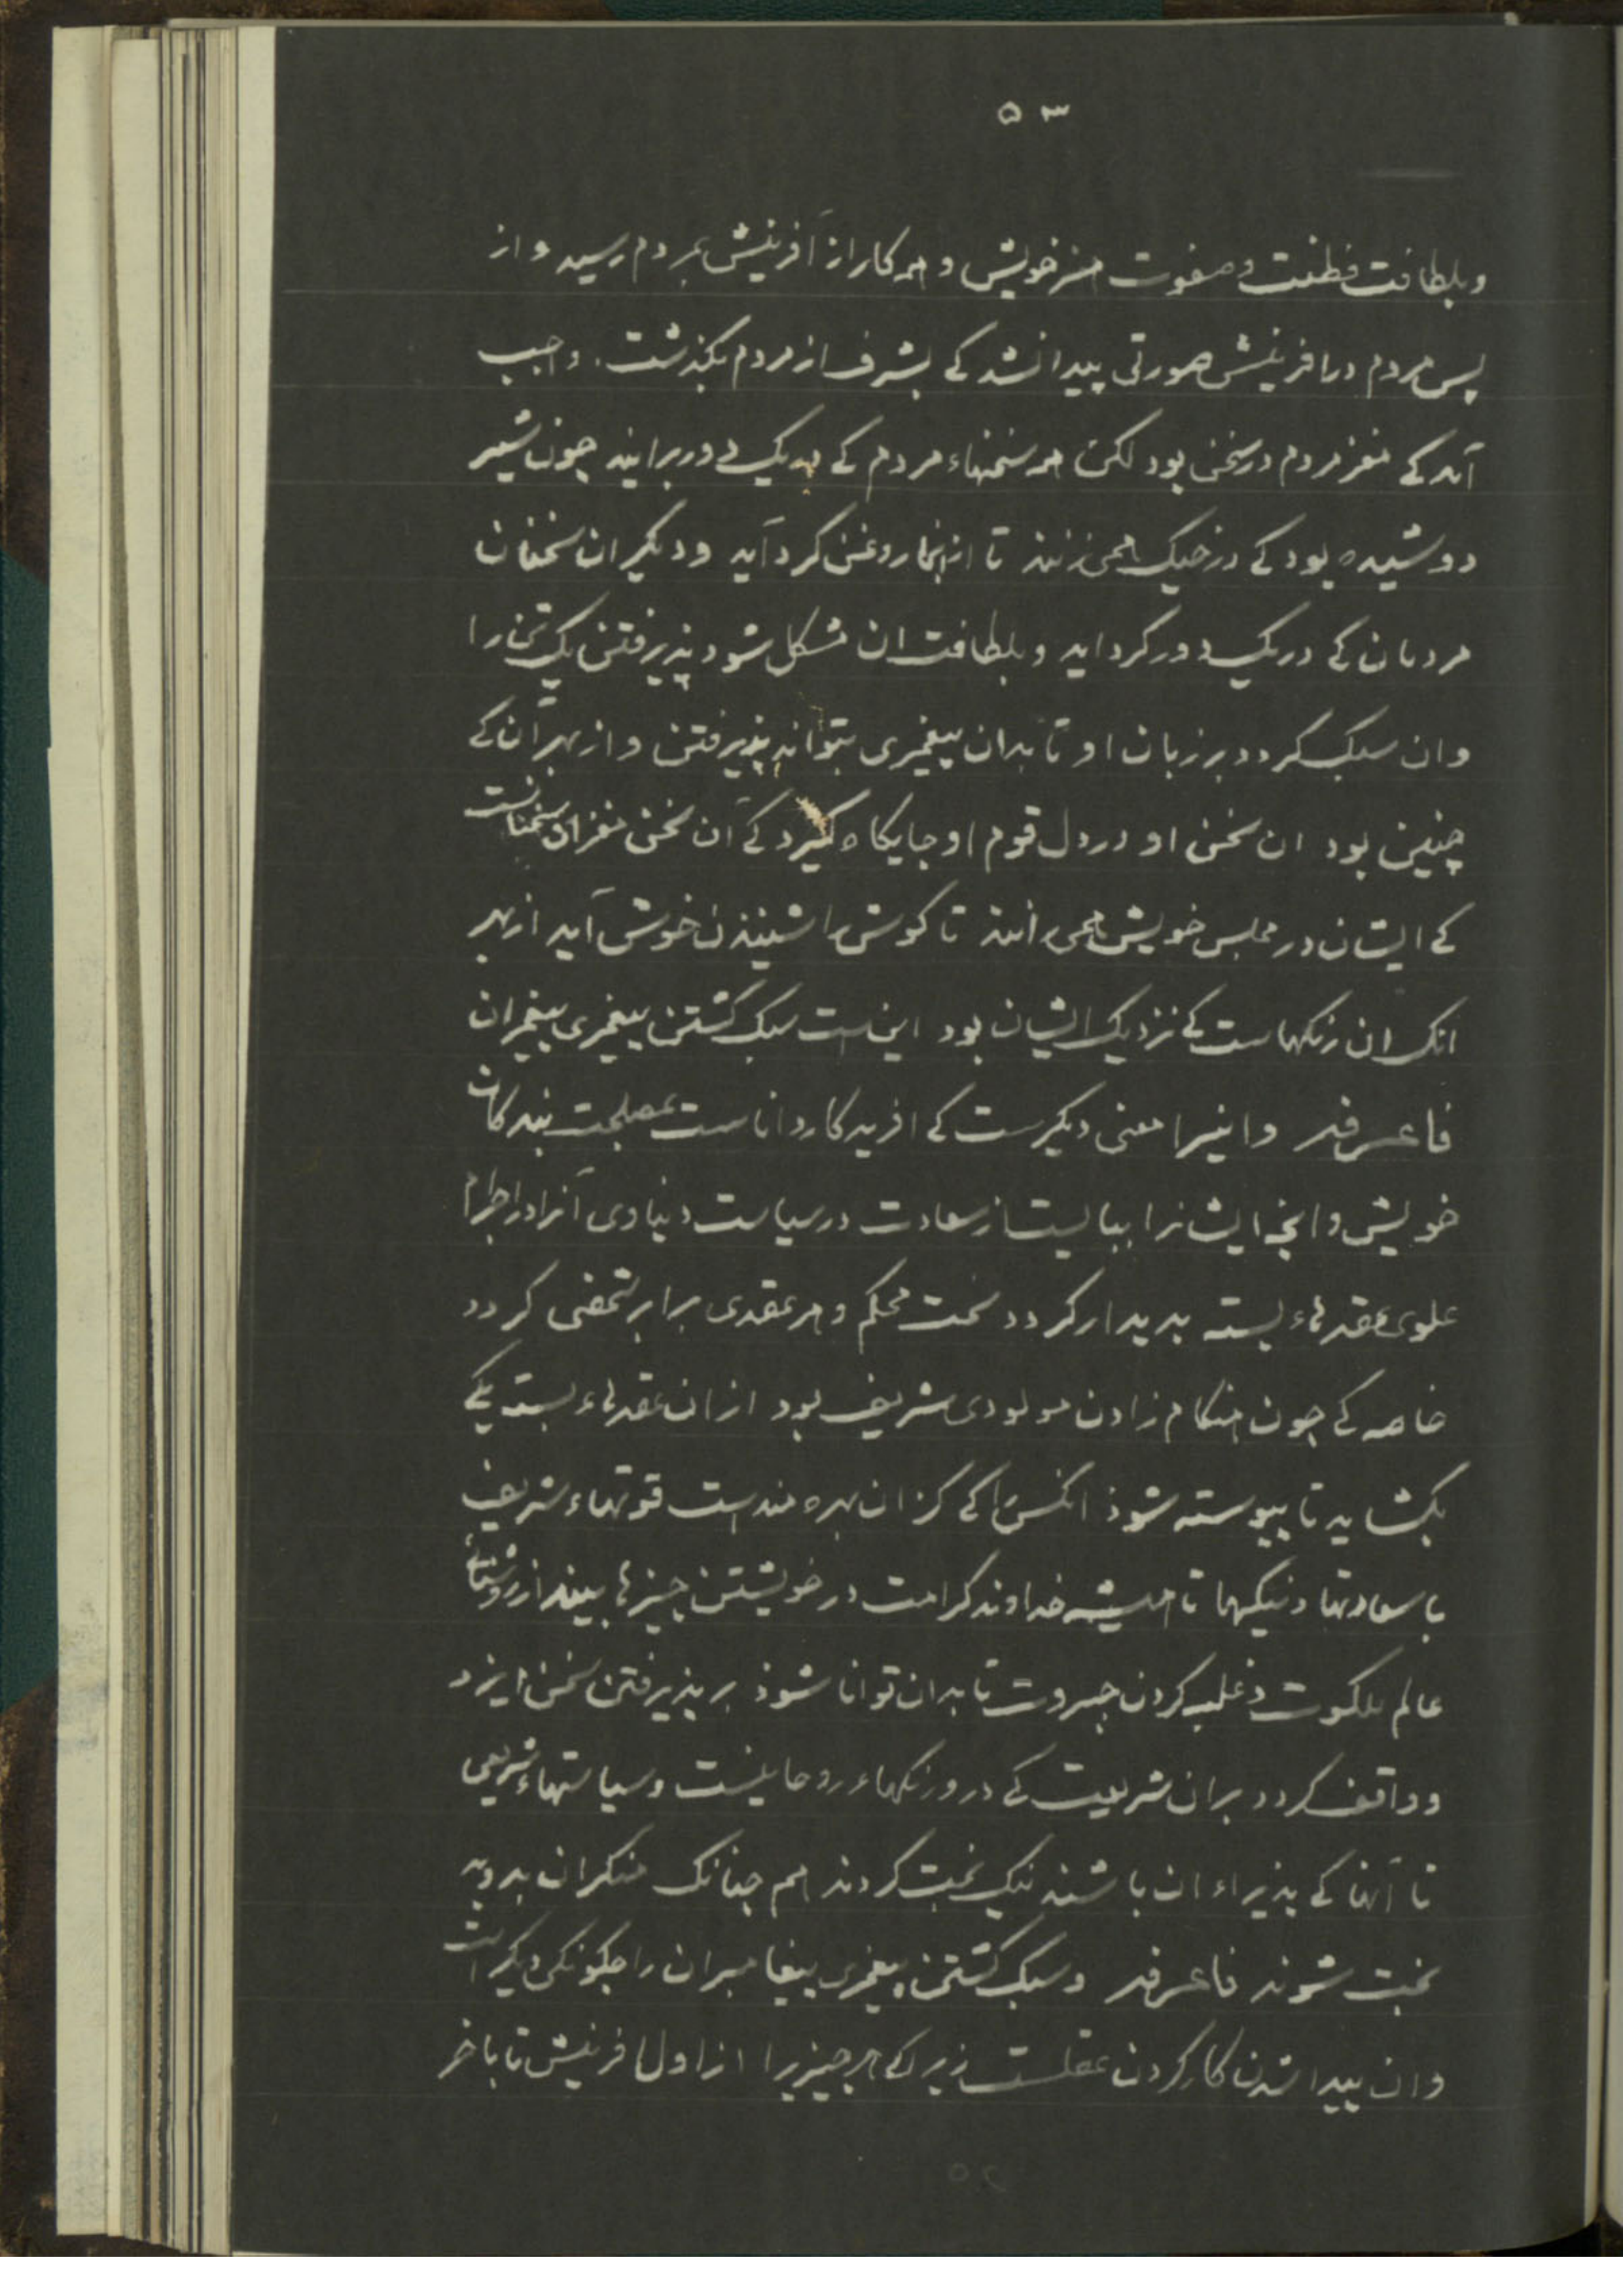 ۵۳
وبلطافت فطنت وصفوت هنر خویش و همه کار از آفرینش بمردم رسید و از
پس مردم درافرینش صورتی پیدا نشد کے بشرف از مردم بکذشت. واجب
آمد کے مغز مردم درسخن بود لکن همه سخنهاء مردم کے بهریک دوربرایند چون شیر
دوشیده بود کے درخیک همی زنند تا از انجا روغن کرد آید ودیکر ان سخنان
مردمان کے دریک دورکرداید وبلطافت ان مشکل شود پذیرفتن یک تن را
وان سبک کردد برزبان او تا بدان پیغمبری بتواند پذیرفتن و از بهر آن کے
چنین بود ان سخن او دردل قوم او جایکاه کیرد کے آن سخن مغز ان سخنانست
کے ایشان در مجلس خویش همی رانند تا کوش را شنیدن خوش آید از بهر
انک ان رنکهاست کے نزدیک ایشان بود این است سبک کشتن پیغمبری پیغمبران
فاعرفه واینرا معنی دیکرست کے افریدکار داناست بمصلحت بندکان
خویش وانچه ایشانرا ببایست از سعادت درسیاست دنیاوی آنرا در اجرام
علوی عقدهاء بسته پدیدار کردد سخت محکم و هر عقدی برابر شخصی کردد
خاصه کے چون هنکام زادن مولودی شریف بود از ان عقدهاء بسته یکے
بکشاید تا پیوسته شوذ انکس را کے کزان بهره مند است قوتهاء شریف
با سعادتها ونیکیها تا همیشه خداوند کرامت در خویشتن چیزها بیند از روشنائے
عالم ملکوت وغلبه کردن جبروت تا بدان توانا شوذ بر پذیرفتن سخن ایزد
وواقف کردد بران شریعت کے درو رنکهاء روحانیست وسیاستهاء شریعی
تا آنها کے پذیراء ان باشند نیک بخت کردند هم چنانک منکران بدو بد
بخت شوند فاعرفه وسبک کشتن پیغمبری پیغامبران را چکونکی دیکر است
وان پیدا شدن کار کردن عقلست زیراکے هر چیزیرا از اول افرینش تا باخر